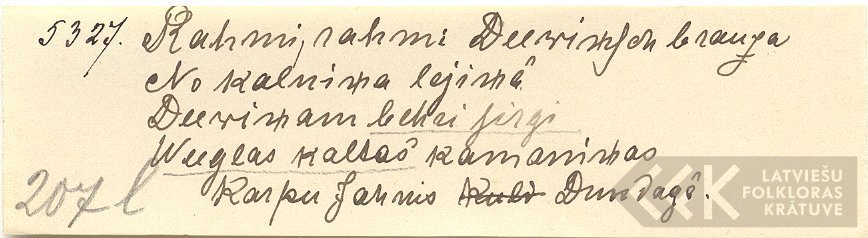 5327. Rahmi, rahmi Deewiņsch brauza
No kalniņa lejiņâ
Deewiņam behri sirgi
Weeglas kaltas kamaniņas
207 l Karpu Jahnis Kuld Dundagâ.
LATVIEŠU
FOLKLORAS
KRĀTUVE